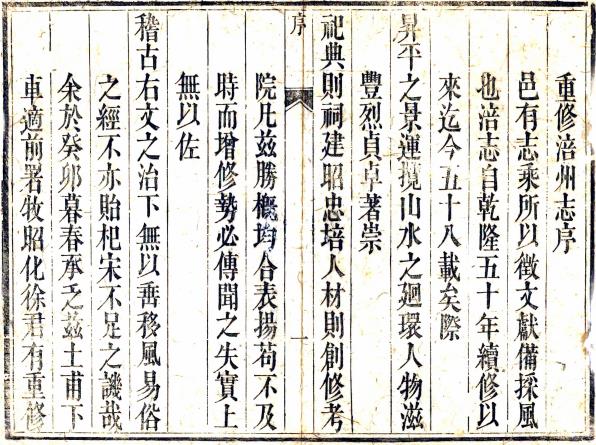 重修涪州志序
邑有志乘所以徵文獻備採風
也涪志自乾隆五十年續修以
來迄今五十八載矣際
昇平之景運攬山水之廻環人物滋
豐烈貞卓著崇
祀典則祠建昭忠培人材則創修考
序
一
院凡兹勝概均合表揚苟不及
時而增修勢必傳聞之失實上
無以佐
稽古右文之治下無以善移風易俗
之經不亦貽杞宋不足之譏哉
余於癸卯暮春承乏兹土甫下
車適前署牧昭化徐君有重修